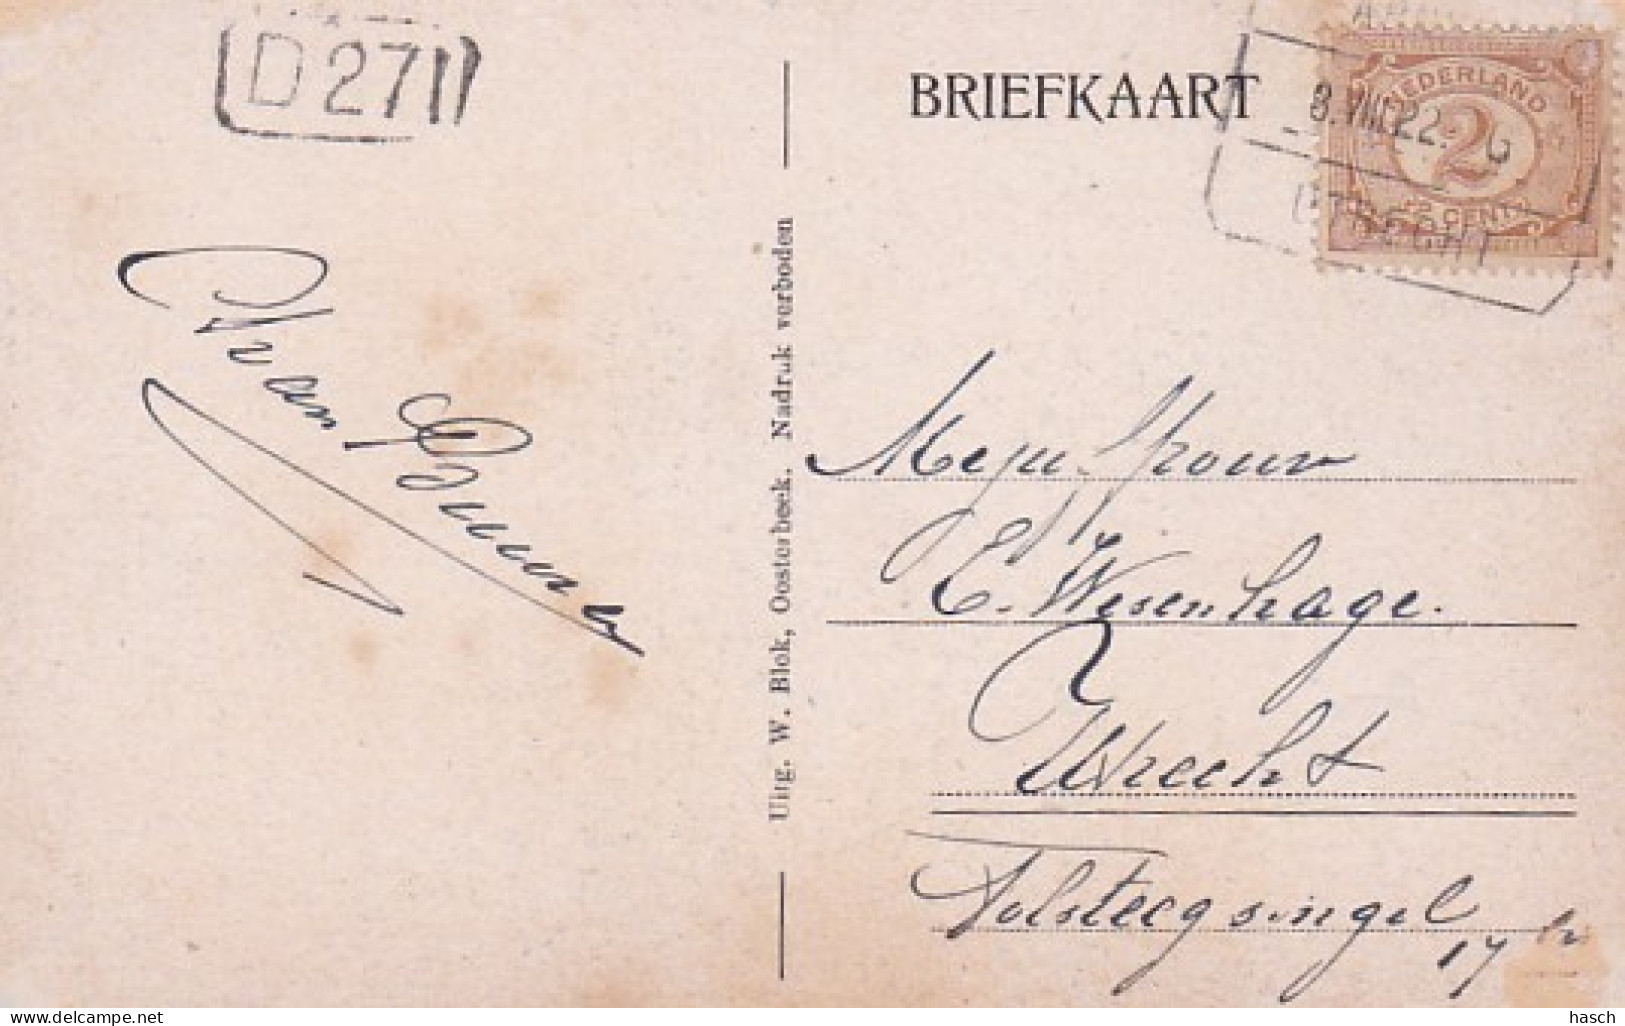 D 27II
BRIEFKAART
8.VIII.22.
UTRECHT
NEDERLAND
2
2 CENT
van
Uitg. W. Blok, Oosterbeek. Nadruk verboden
Mejuffrouw
E. Wesenhage.
Utrecht
Tolsteegsingel
17
© delcampe.net
hasch